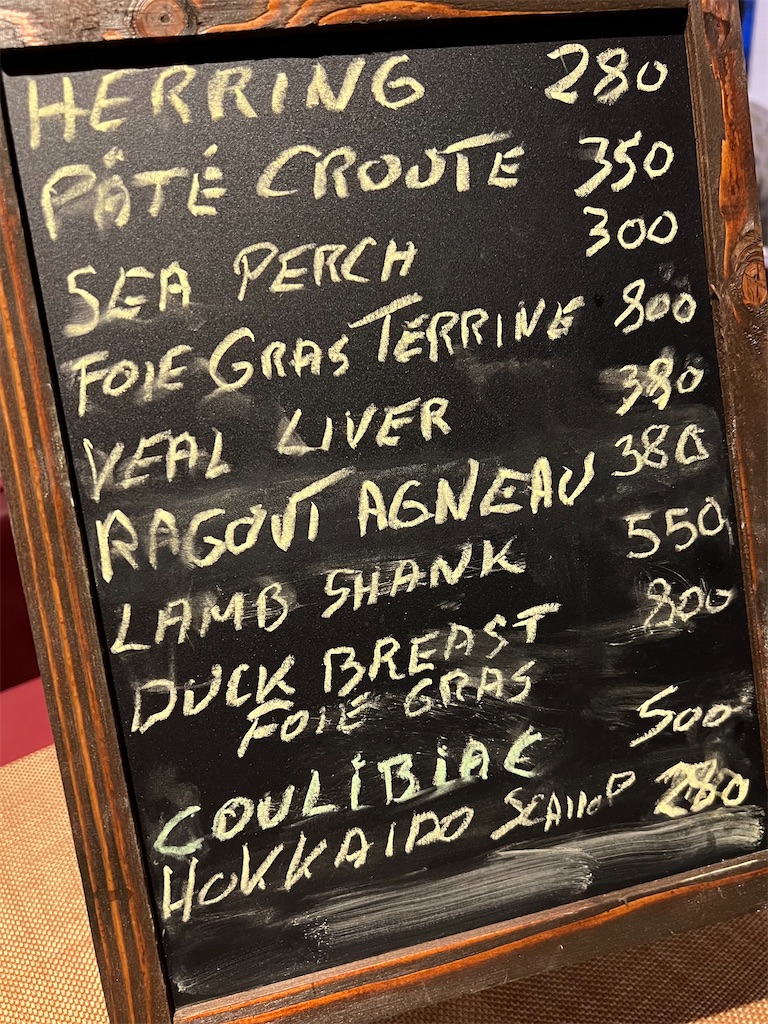 HERRING 280
PÂTÉ CROUTE 350
SEA PERCH 300
FOIE GRAS TERRINE 800
VEAL LIVER 380
RAGOUT AGNEAU 380
LAMB SHANK 550
DUCK BREAST 800
FOIE GRAS
COULIBIAC 500
HOKKAIDO SCALLOP 280